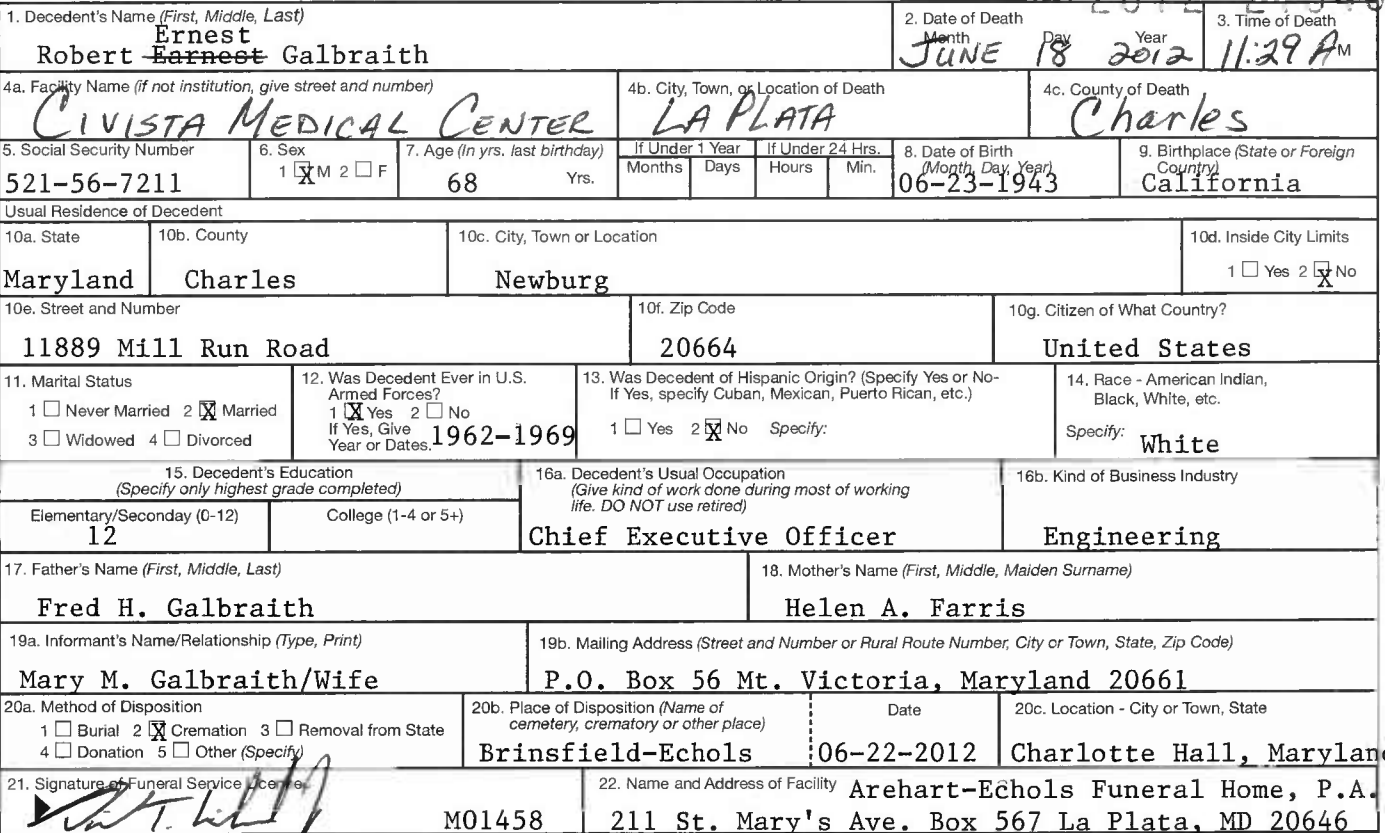 1. Decedent's Name (First, Middle, Last)
Ernest
Robert Earnest Galbraith
2. Date of Death
Month Day Year
JUNE 18 2012
3. Time of Death
11:29 A M
4a. Facility Name (if not institution, give street and number)
CIVISTA MEDICAL CENTER
4b. City, Town, or Location of Death
LA PLATA
4c. County of Death
Charles
5. Social Security Number
521-56-7211
6. Sex
1 X M 2 ☐ F
7. Age (In yrs. last birthday)
68 Yrs.
If Under 1 Year
Months Days
If Under 24 Hrs.
Hours Min.
8. Date of Birth
(Month, Day, Year)
06-23-1943
9. Birthplace (State or Foreign
Country)
California
Usual Residence of Decedent
10a. State
Maryland
10b. County
Charles
10c. City, Town or Location
Newburg
10d. Inside City Limits
1 ☐ Yes 2 X No
10e. Street and Number
11889 Mill Run Road
10f. Zip Code
20664
10g. Citizen of What Country?
United States
11. Marital Status
1 ☐ Never Married 2 X Married
3 ☐ Widowed 4 ☐ Divorced
12. Was Decedent Ever in U.S.
Armed Forces?
1 X Yes 2 ☐ No
If Yes, Give
Year or Dates. 1962-1969
13. Was Decedent of Hispanic Origin? (Specify Yes or No-
If Yes, specify Cuban, Mexican, Puerto Rican, etc.)
1 ☐ Yes 2 X No Specify:
14. Race - American Indian,
Black, White, etc.
Specify: White
15. Decedent's Education
(Specify only highest grade completed)
Elementary/Seconday (0-12)
12
College (1-4 or 5+)
16a. Decedent's Usual Occupation
(Give kind of work done during most of working
life. DO NOT use retired)
Chief Executive Officer
16b. Kind of Business Industry
Engineering
17. Father's Name (First, Middle, Last)
Fred H. Galbraith
18. Mother's Name (First, Middle, Maiden Surname)
Helen A. Farris
19a. Informant's Name/Relationship (Type, Print)
Mary M. Galbraith/Wife
19b. Mailing Address (Street and Number or Rural Route Number, City or Town, State, Zip Code)
P.O. Box 56 Mt. Victoria, Maryland 20661
20a. Method of Disposition
1 ☐ Burial 2 X Cremation 3 ☐ Removal from State
4 ☐ Donation 5 ☐ Other (Specify)
20b. Place of Disposition (Name of
cemetery, crematory or other place)
Brinsfield-Echols
Date
06-22-2012
20c. Location - City or Town, State
Charlotte Hall, Marylan
21. Signature of Funeral Service
M01458
22. Name and Address of Facility Arehart-Echols Funeral Home, P.A.
211 St. Mary's Ave. Box 567 La Plata, MD 20646